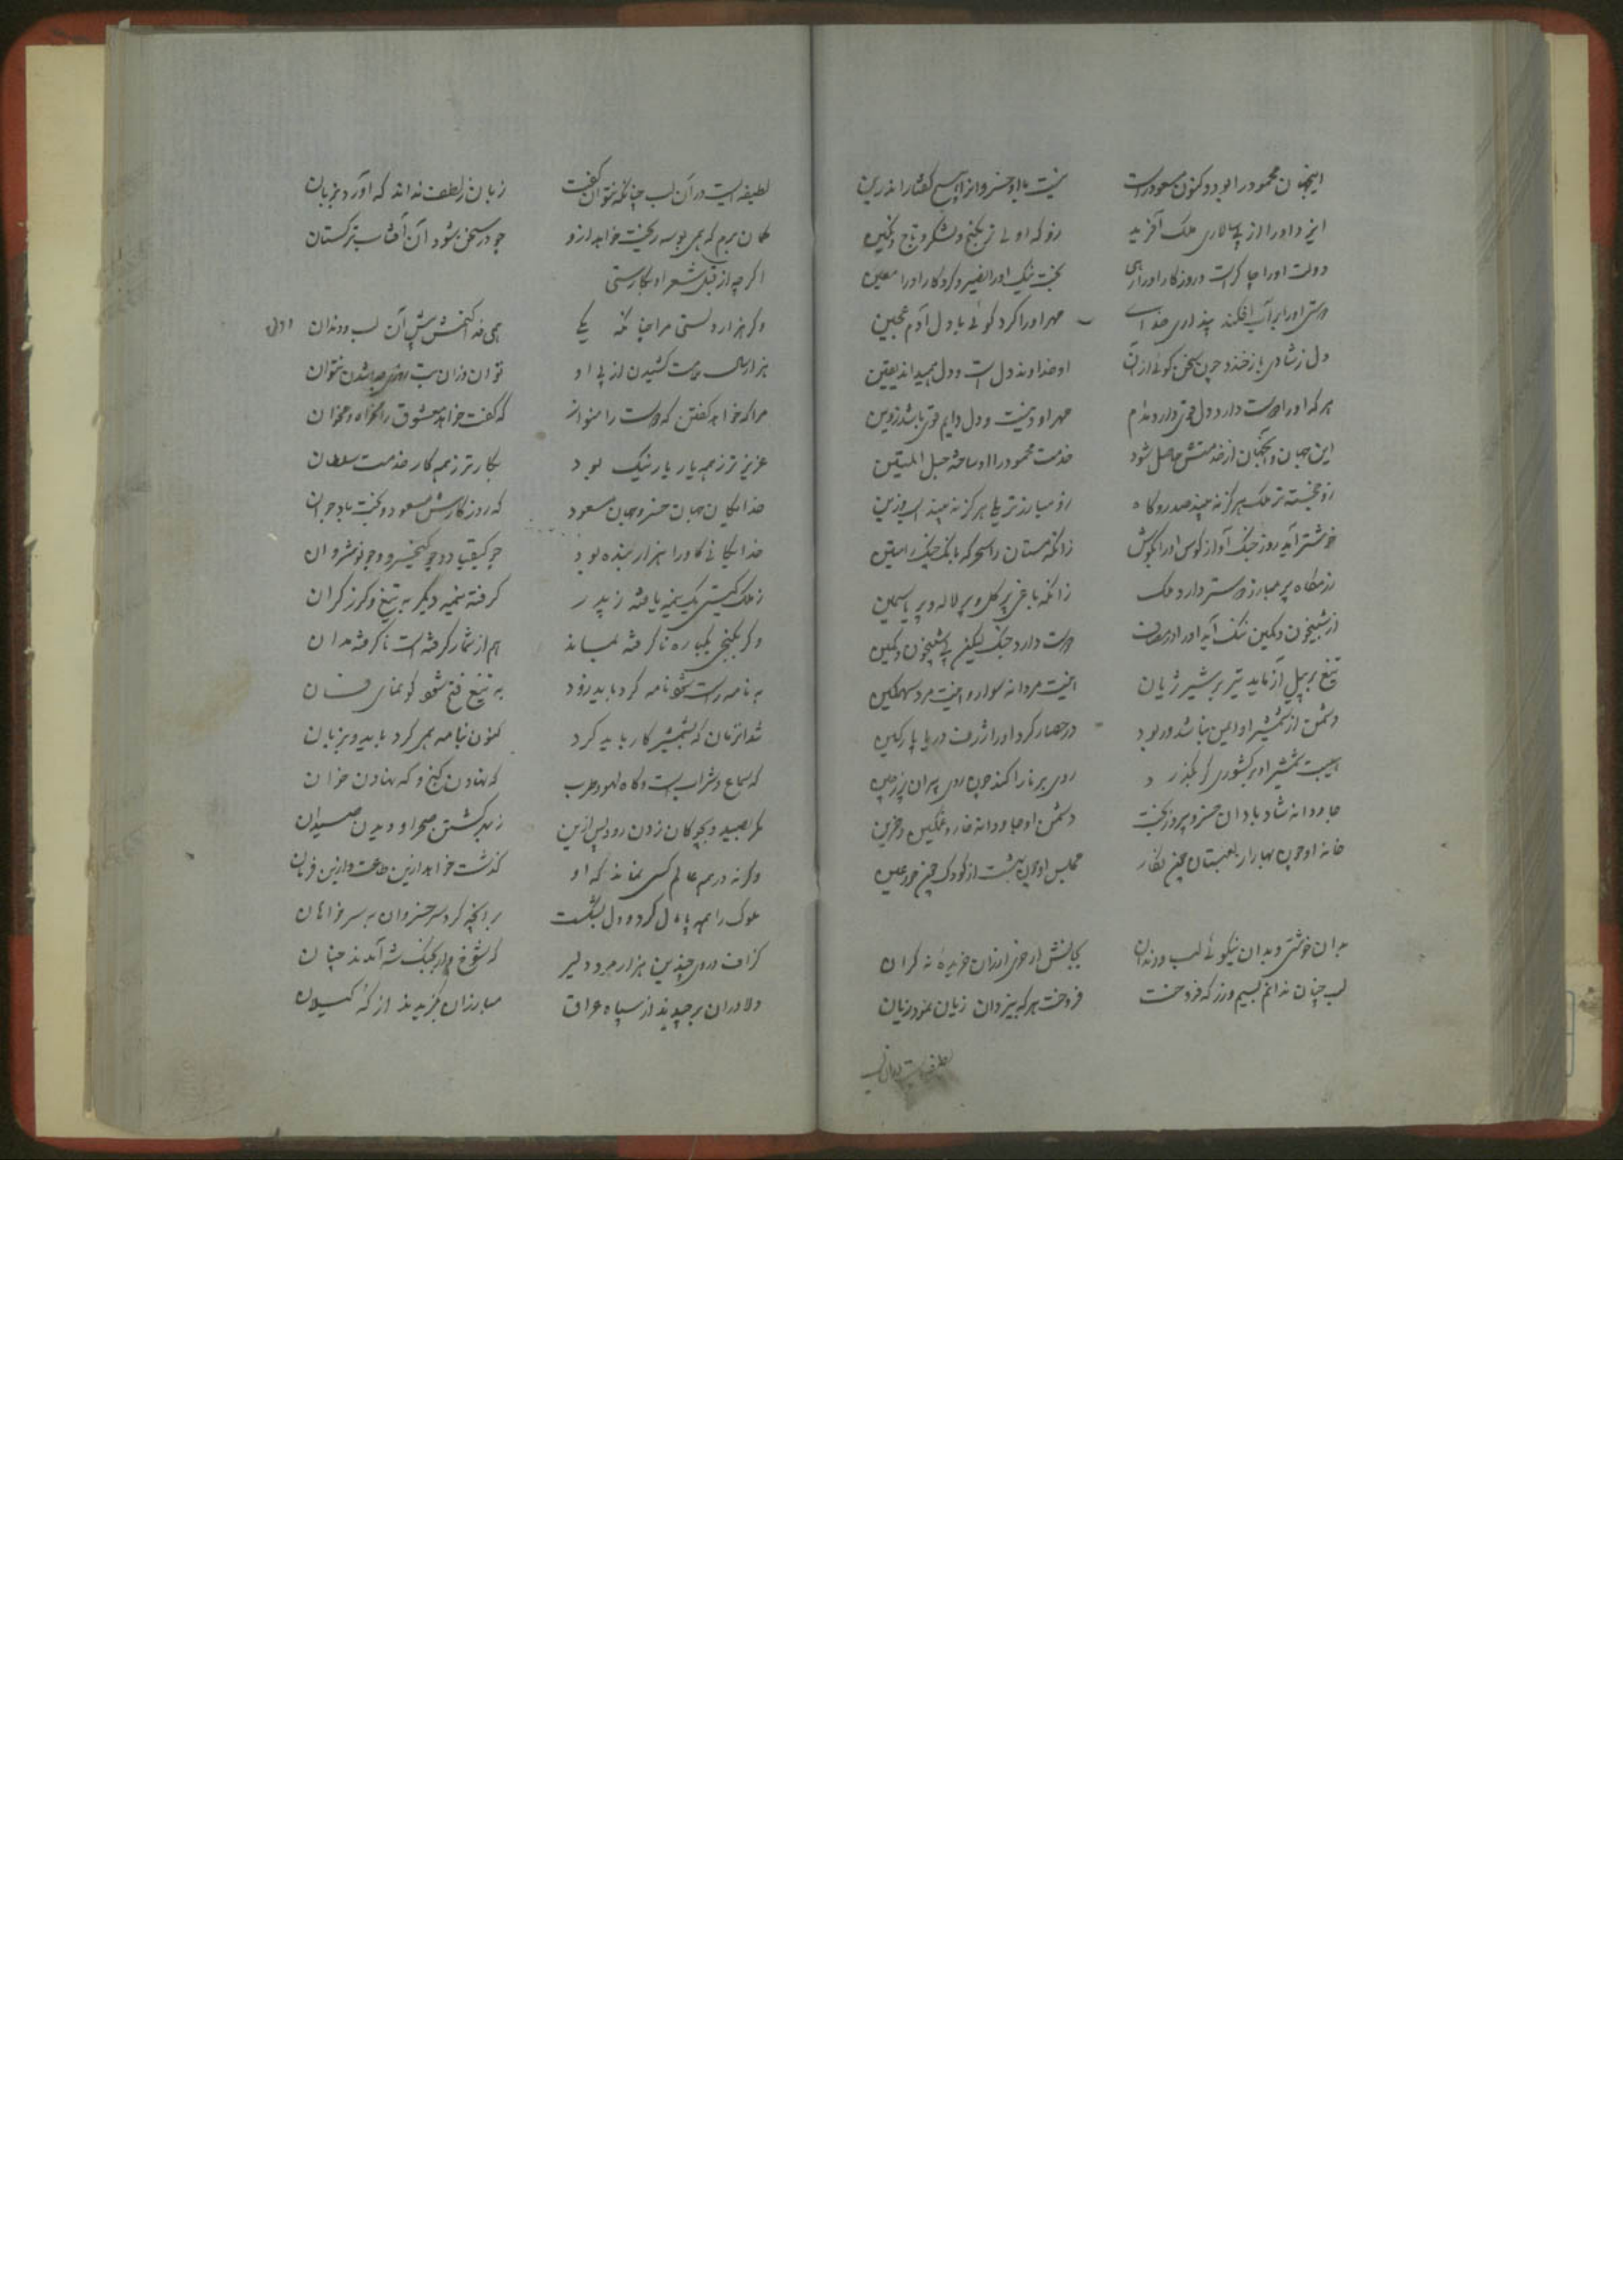 اینجهان محمود را بود و کنون مسعود راست نیست با او خسروانرا هیچ گفتار اندرین
ایزد او را از پی سالاری ملک آفرید زو که اولی تر بگنج و لشکر و تاج و نگین
دولت او را چاکرست و روزگار او را رهی بخت نیک او را نصیر و کردگار او را معین
دوستی او را بر آب افکند پنداری خدای مهر او را کرد گوئی با دل آدم عجین
دل ز شادی باز خندد چون سخن گوئی ازان او خداوند دل است و دل همیداند یقین
هر که او را دوست دارد دل قوی دارد مدام مهر او دینست و دل دایم قوی باشد زدین
این جهان و آنجهان از خدمتش حاصل شود خدمت محمود را او ساخته حبل المتین
زو خجسته تر ملک هرگز نه بیند صدر و گاه زو مبارزتر یلی هرگز نه بیند اسب و زین
خوشتر آید روز جنگ آواز کوس او را بگوش زانکه مستان را سحرگه بانگ چنگ رامتین
رزمگاه پر مبارز دوستر دارد ملک زانکه باغی پر گل و پر لاله و پر یاسمین
از شبیخون و کمین ننگ آید او را در مصاف دوست دارد جنگ لیکن بی شبیخون و کمین
تیغ بر پیل آزماید تیر بر شیر ژیان اینت مردانه سوار و اینت مرد سهمگین
دشمن از شمشیر او ایمن نباشد ور بود در حصار کرد او را ژرف دریا پارگین
هیبت شمشیر او بر کشوری گر بگذرد روی برنا را کند چون روی پیران پر ز چین
جاودانه شاد بادا آن خسرو پیروز بخت دشمن او جاودانه خار و غمگین و حزین
خانه او چون بهار از لعبتان چین نگار مجلس او چون بهشت از کودک چین حور عین
بدان خوشی و بدان نیکوئی لب و دندان بجانش ار خری ارزان خریده نه گران
لب چنان ندانم بسیم و زر که فروخت فروخت هر که بیزدان زیان نمود زیان
لطیفه ایست دران لب
لطیفه ایست در آن لب چنانکه نتوان گفت زبان ز لطف نداند که آورد بزبان
گمان برم که همی بوسه ریخت خواهد ازو چو در سخن شود آن آفتاب ترکستان
اگر چه از قبل شعر او بکارستی
و گر هزار دلستی مرا چنانکه یکی همی فدا کنمش پیش آن لب و دندان
هزار سال ملامت کشیدن از پی او توان وزان بت روزی جدا شدن نتوان
مرا که خواهد گفتن که دوست را منواز که گفت خواهد معشوق را مخواه و مخوان
عزیزتر ز همه یار یار نیک بود بکارتر ز همه کار خدمت سلطان
خدایگان جهان خسرو جهان مسعود که روزگارش مسعود و بخت باد جوان
خدایگانی کاو را هزار بنده بود چو کیقباد و چو کیخسرو و چو نوشروان
ز ملک گیتی یک نیمه یافته ز پدر گرفته نیمه دیگر به تیغ و گرز گران
و گر بکنجی یکباره ناگرفته بماند هم از شمار گرفته است ناگرفته مدان
به نامه راست شود نامه کرد باید زود به تیغ فتح شود گو نمای تیغ فسان
شد آنزمان که بشمشیر کار باید کرد کنون بنامه همی کرد باید و بزبان
که سماع و شرابست و گاه لهو و طرب که نهادن گنج و که نهادن خوان
مگر بصید و بچوگان زدن رود پس ازین ز بهر گشتن صحرا و دیدن میدان
و گرنه در همه عالم کسی نماند که او گذشت خواهد ازین طاعت و ازین فرمان
ملوک را همه پامال کرد و دل بشکست بر آنچه کرد سر خسروان به سر فرا هان
گزاف در وی چندین هزار مرد دلیر که بجنگ شه آمدند چنان
دلاوران برچیدند از سپاه عراق مبارزان بگزیدند از که گیلان